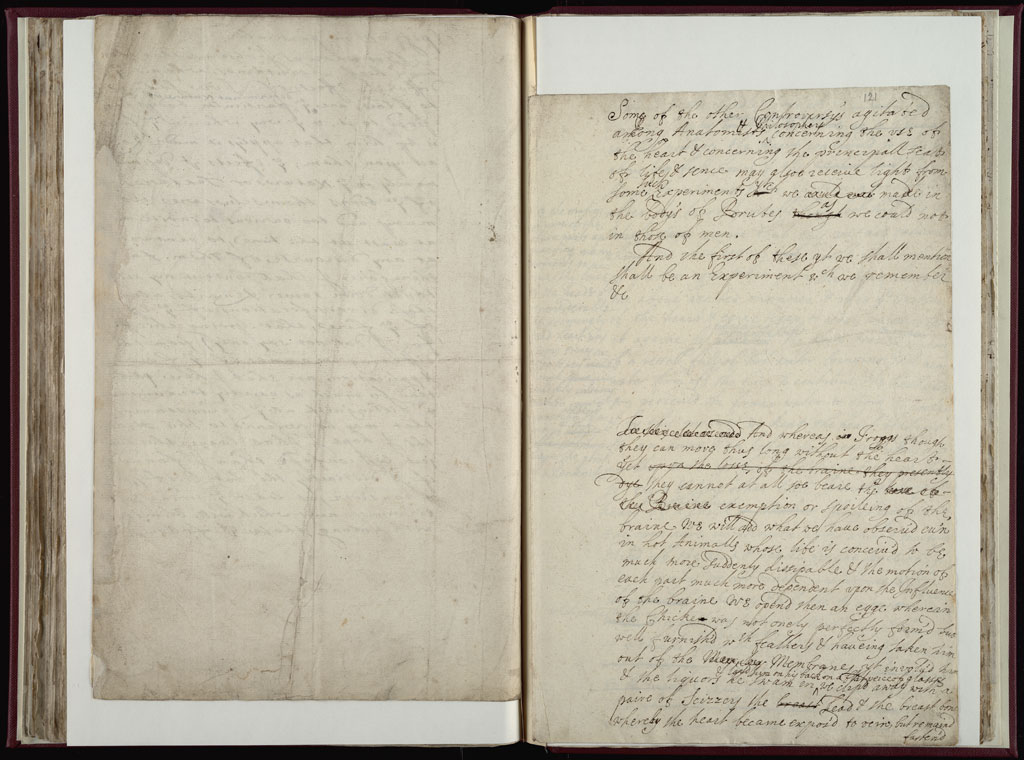 121
Some of the other Controversys agitated
among Anatomists & Philosophers concerning the use of
the heart & concerning the principall seat
of life & sence may also receive light from
some such Experiments as we made in
the Body's of Brutes as we could not
in those of men.
And the first of these yt we shall mention
shall be an Experiment wch we remember
&c
And whereas in Froggs though
they can move thus long without the heart
yet upon the loss of the braine they presently
dye they cannot at all soe beare the
exemption or spoileing of the
braine We will add what we have observ'd ev'n
in hot Animalls whose life is conceiv'd to be
much more suddenly dissipable & the motion of
each part much more dependent upon the Influence
of the braine We open'd then an egge wherein
the Chicke was not onely perfectly form'd but
well furnish'd wth feathers & haveing taken him
out of the Membranes yt involv'd him
& the liquors he swam in & laid him on his back on a flat peice of glasse we clip'd away with a
paire of Scizzers the head & the breast bone
whereby the heart became expos'd to veiw, but remain'd
fasten'd